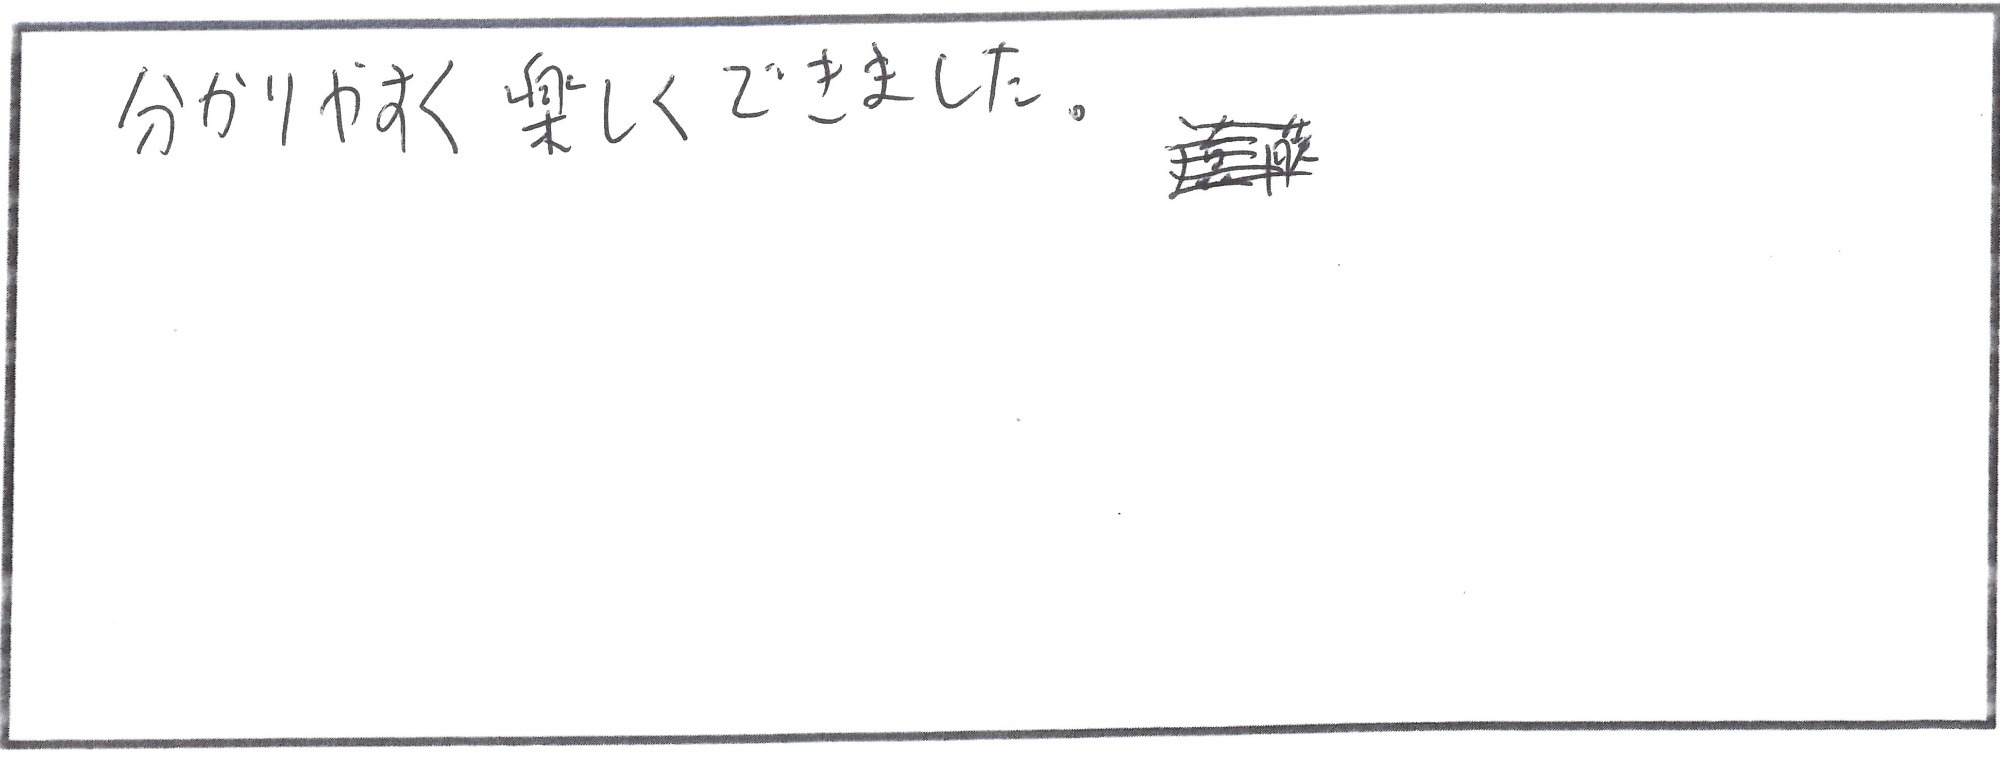 分かりやすく楽しくできました。